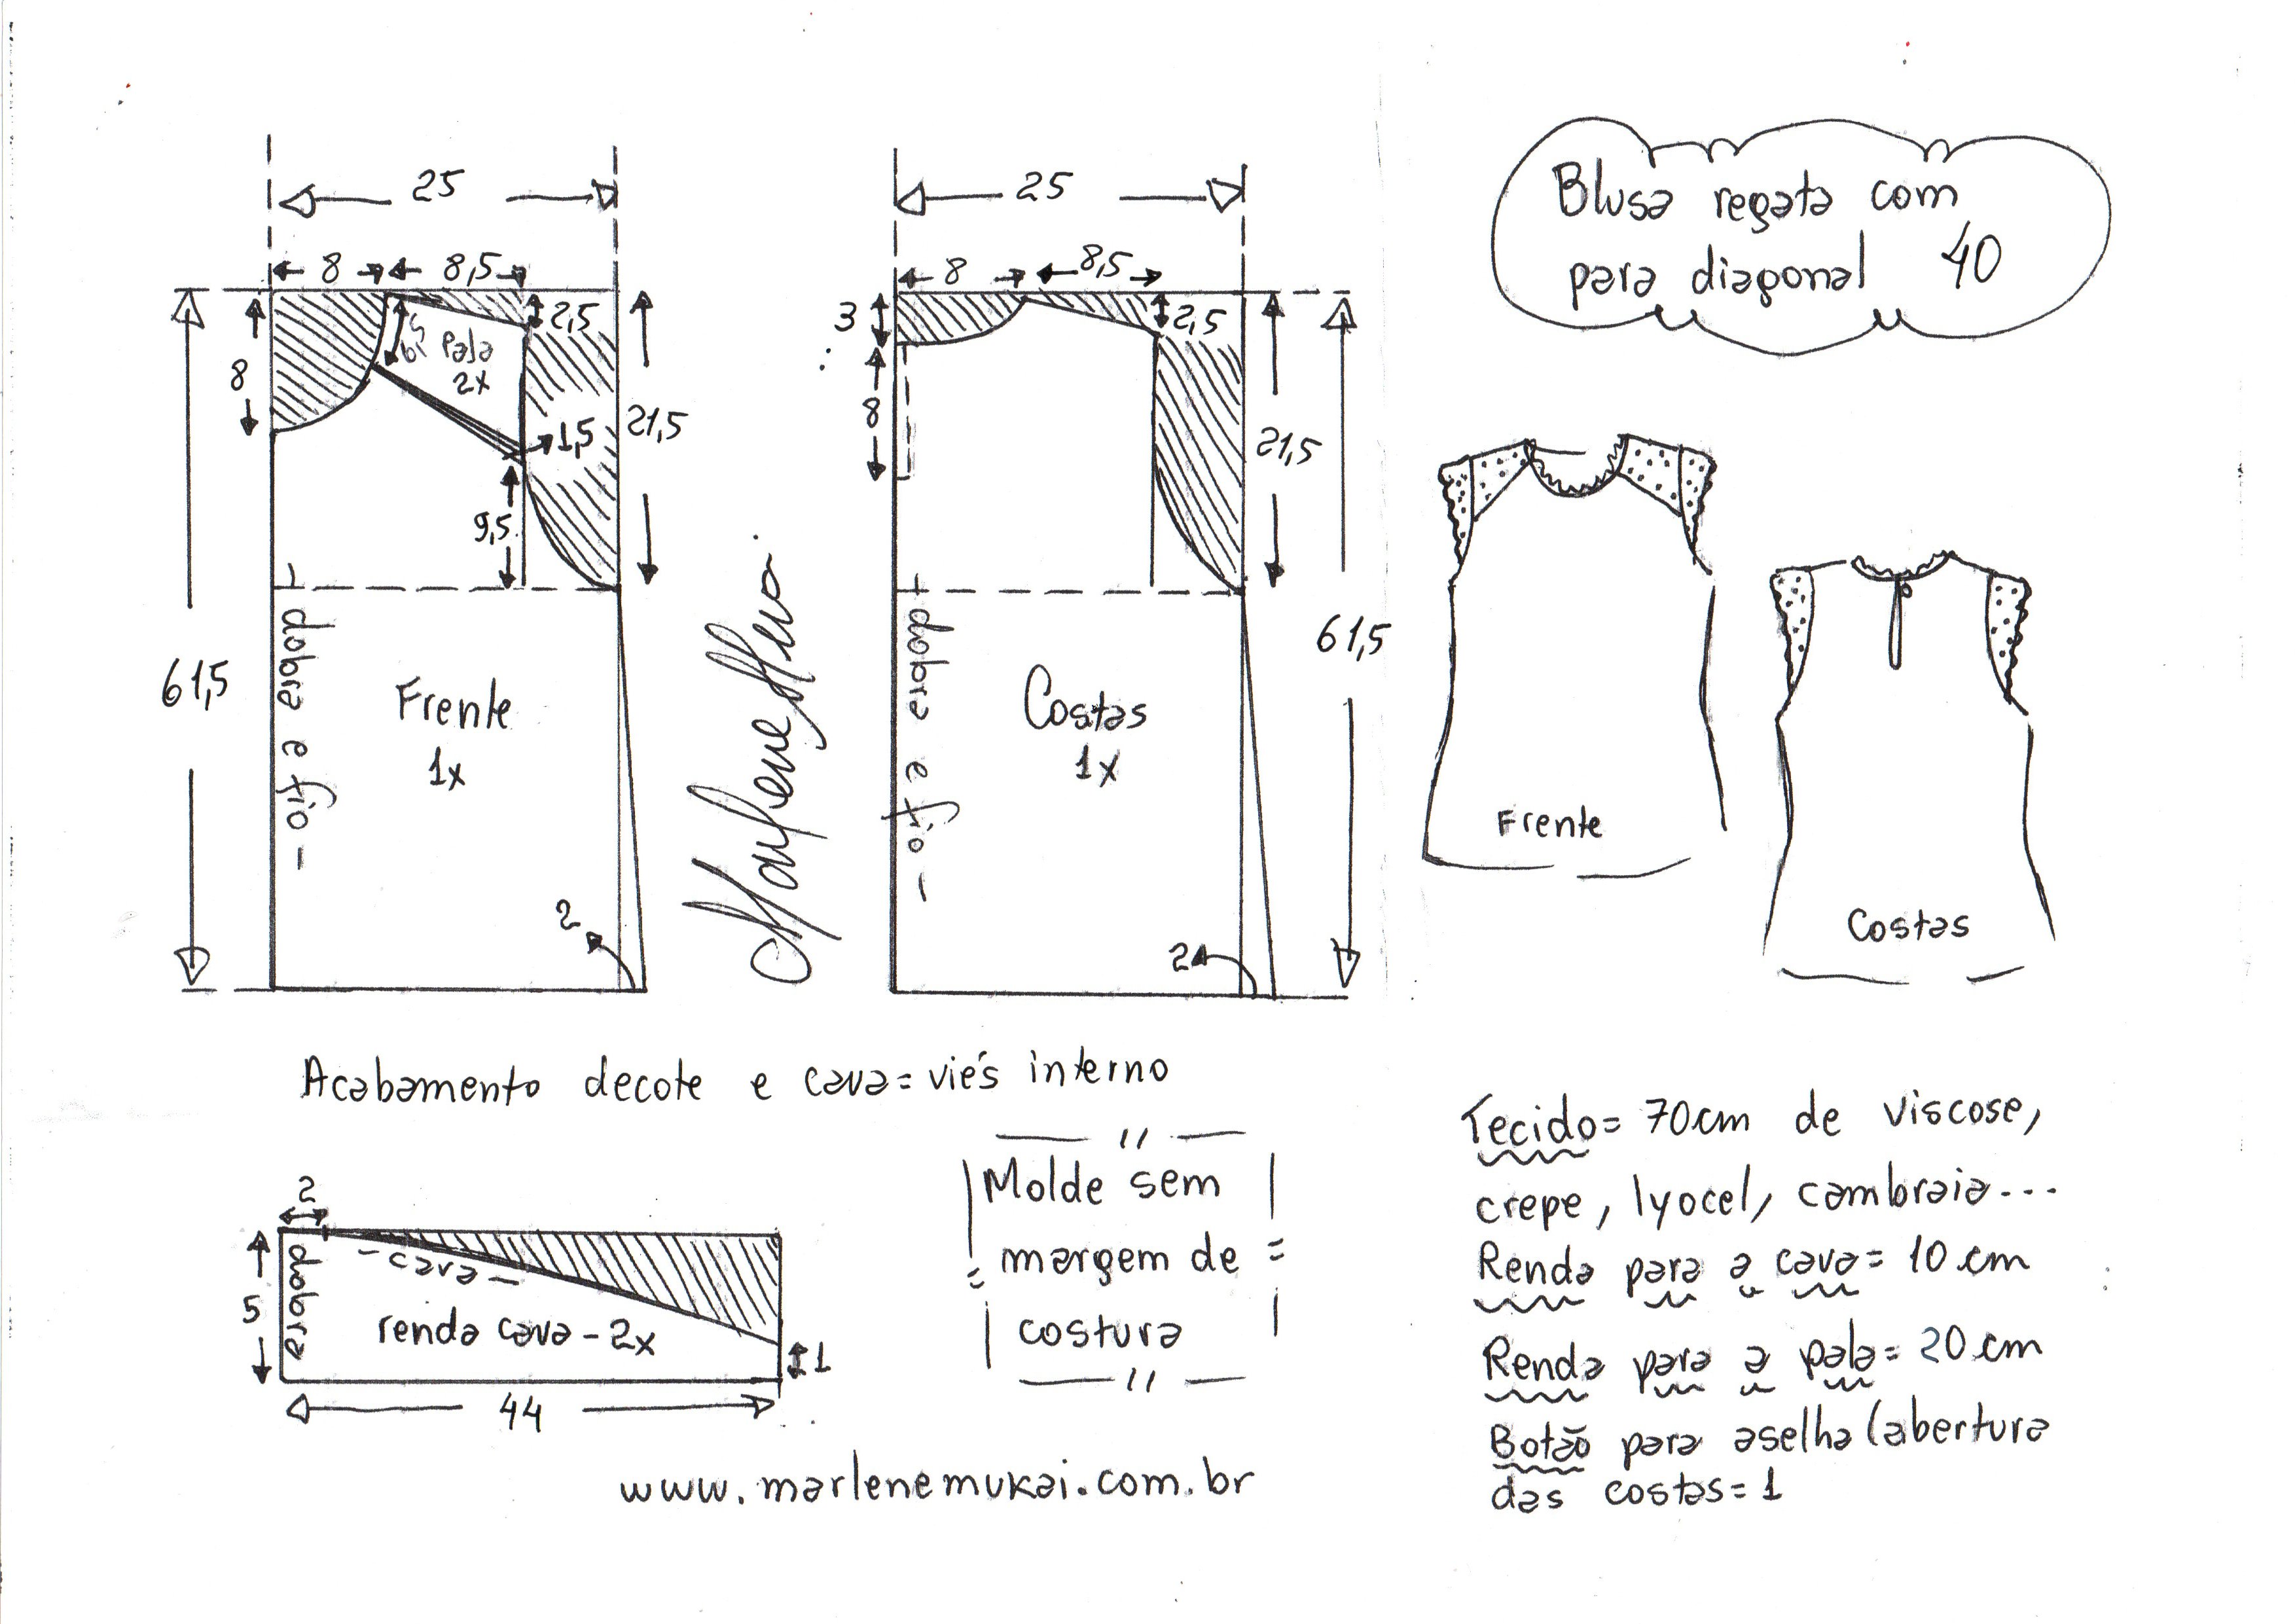 Blusa regata com
para diagonal 40
25
8 8,5
2,5
8
Pala
2x
1,5
21,5
9,5
61,5
- dobra e fio -
Frente
1x
2
25
8 8,5
3
2,5
8
21,5
61,5
- dobra e fio -
Costas
1x
2
Frente
Costas
Acabamento decote e cava = viés interno
2
5
dobra
- cava -
renda cava - 2x
1
44
Molde sem
margem de
costura
Tecido = 70cm de viscose,
crepe, lyocel, cambraia...
Renda para a cava = 10 cm
Renda para a pala = 20 cm
Botão para aselha (abertura
das costas = 1
www.marlenemukai.com.br